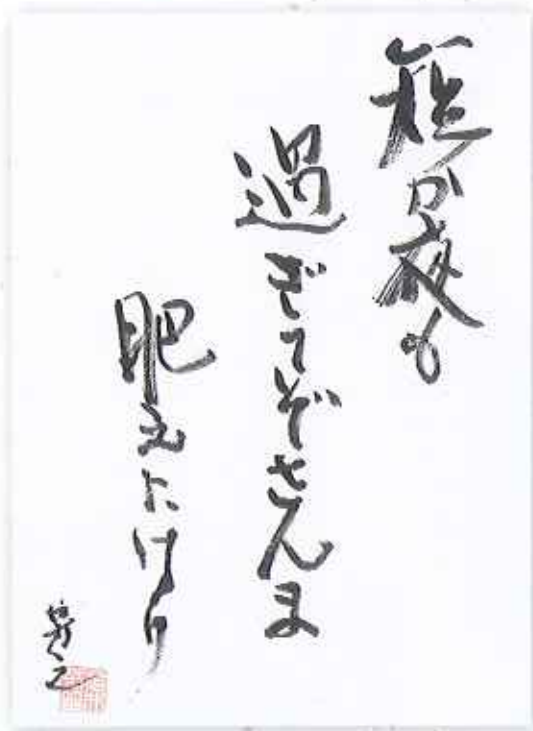 短か夜も
過ぎてぞさんま
肥えにけり